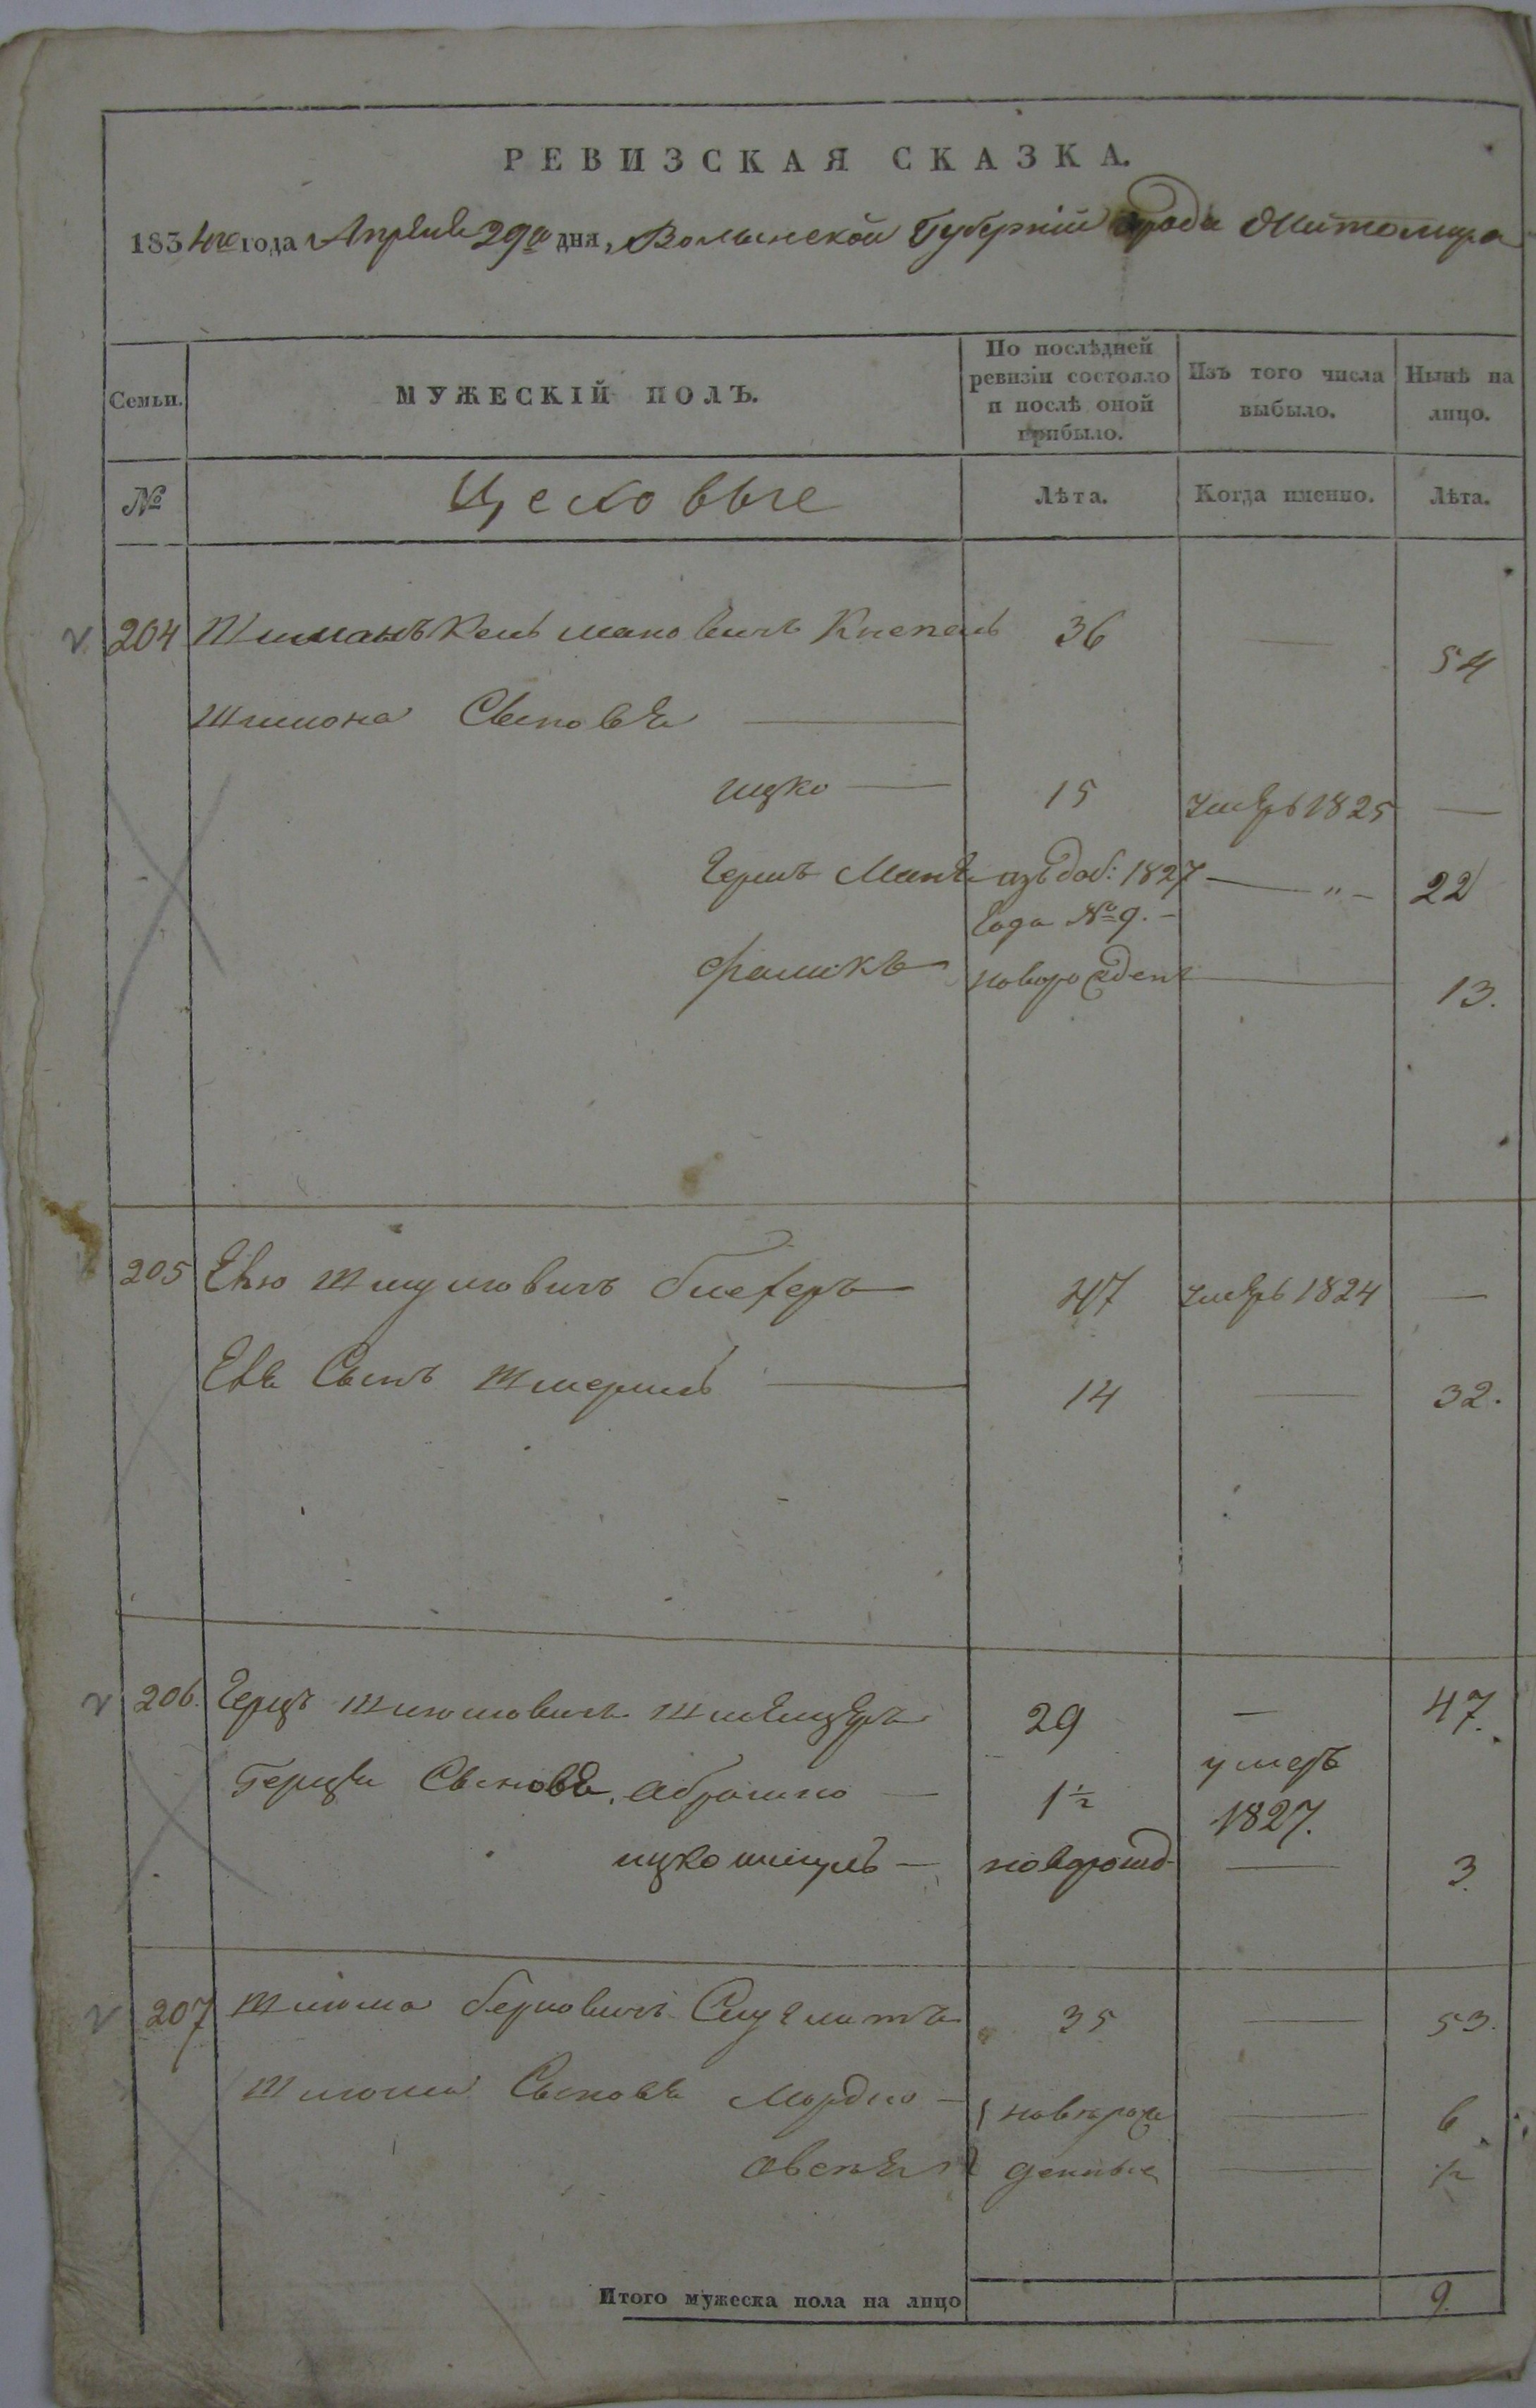 РЕВИЗСКАЯ СКАЗКА.
1834го года Апреля 29го дня, Волынской Губерніи города Житомира
Семьи.
МУЖЕСКІЙ ПОЛЪ.
По послѣдней ревизіи состояло и послѣ оной прибыло.
Изъ того числа выбыло.
Нынѣ на лицо.
№
Цеховые
Лѣта.
Когда именно.
Лѣта.
204 36 — 54
Шимона Сыновья —
ицко — 15 умеръ 1825 —
Герш изъ доб: 1827 — " — 22
года № 9. —
новорожденъ — 13.
205 47 умеръ 1824 —
Его Сынъ Шмериль — 14 — 32.
206. Герцъ 29 — 47.
Герца Сыновья, Абрамко — 1½ умеръ 1827.
ицко шмуль — новорожд — 3.
207 Шлиома Берковичъ 35 — 53.
Шлиомы Сыновья Мордко — новорож — 6
денные — ½
Итого мужеска пола на лицо 9.